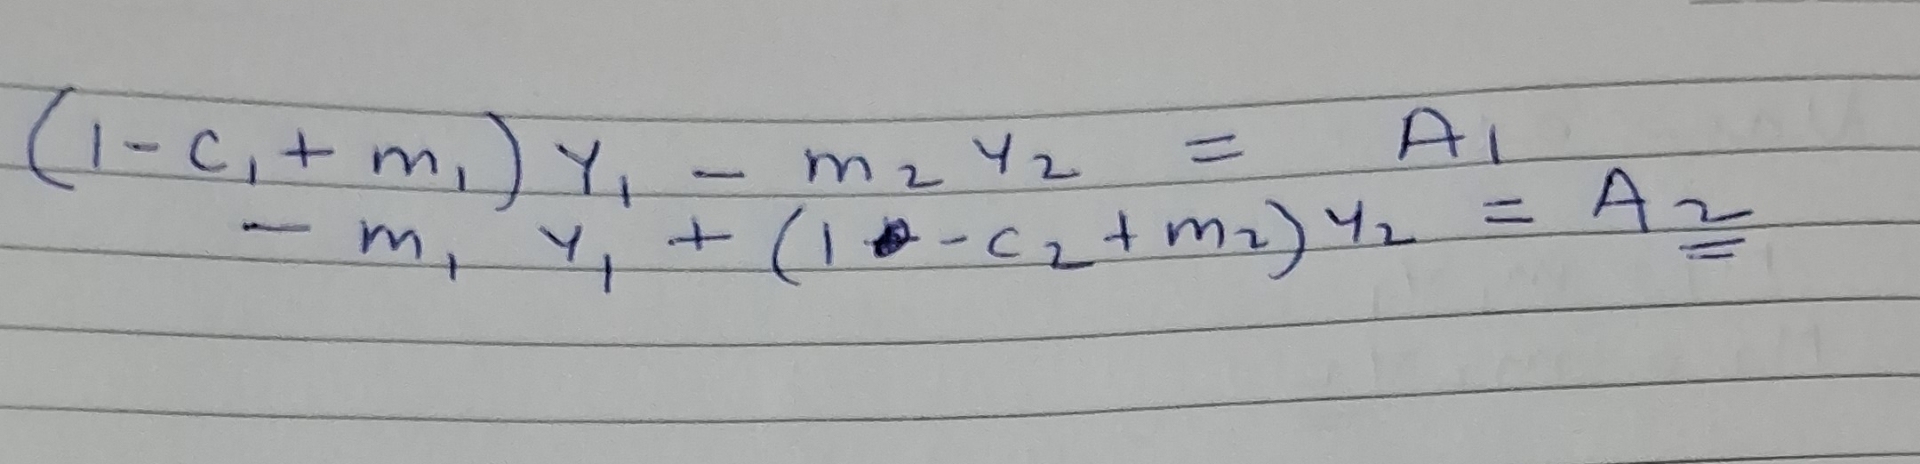 (1-c₁+m₁)Y₁ - m₂Y₂ = A₁
-m₁Y₁ + (1-c₂+m₂)Y₂ = A₂